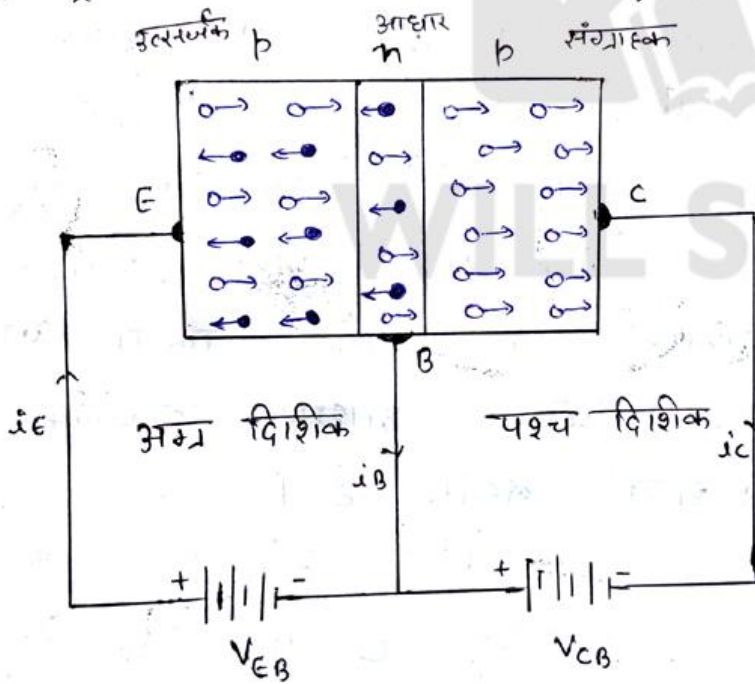 उत्सर्जक आधार संग्राहक
p n p
E C
B
iE अग्र दिशिक iB पश्च दिशिक iC
+ - + -
VEB VCB
WILL S